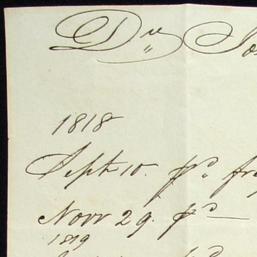 Dr
1818
Sept 10. pd.
Novr 29. pd
1819